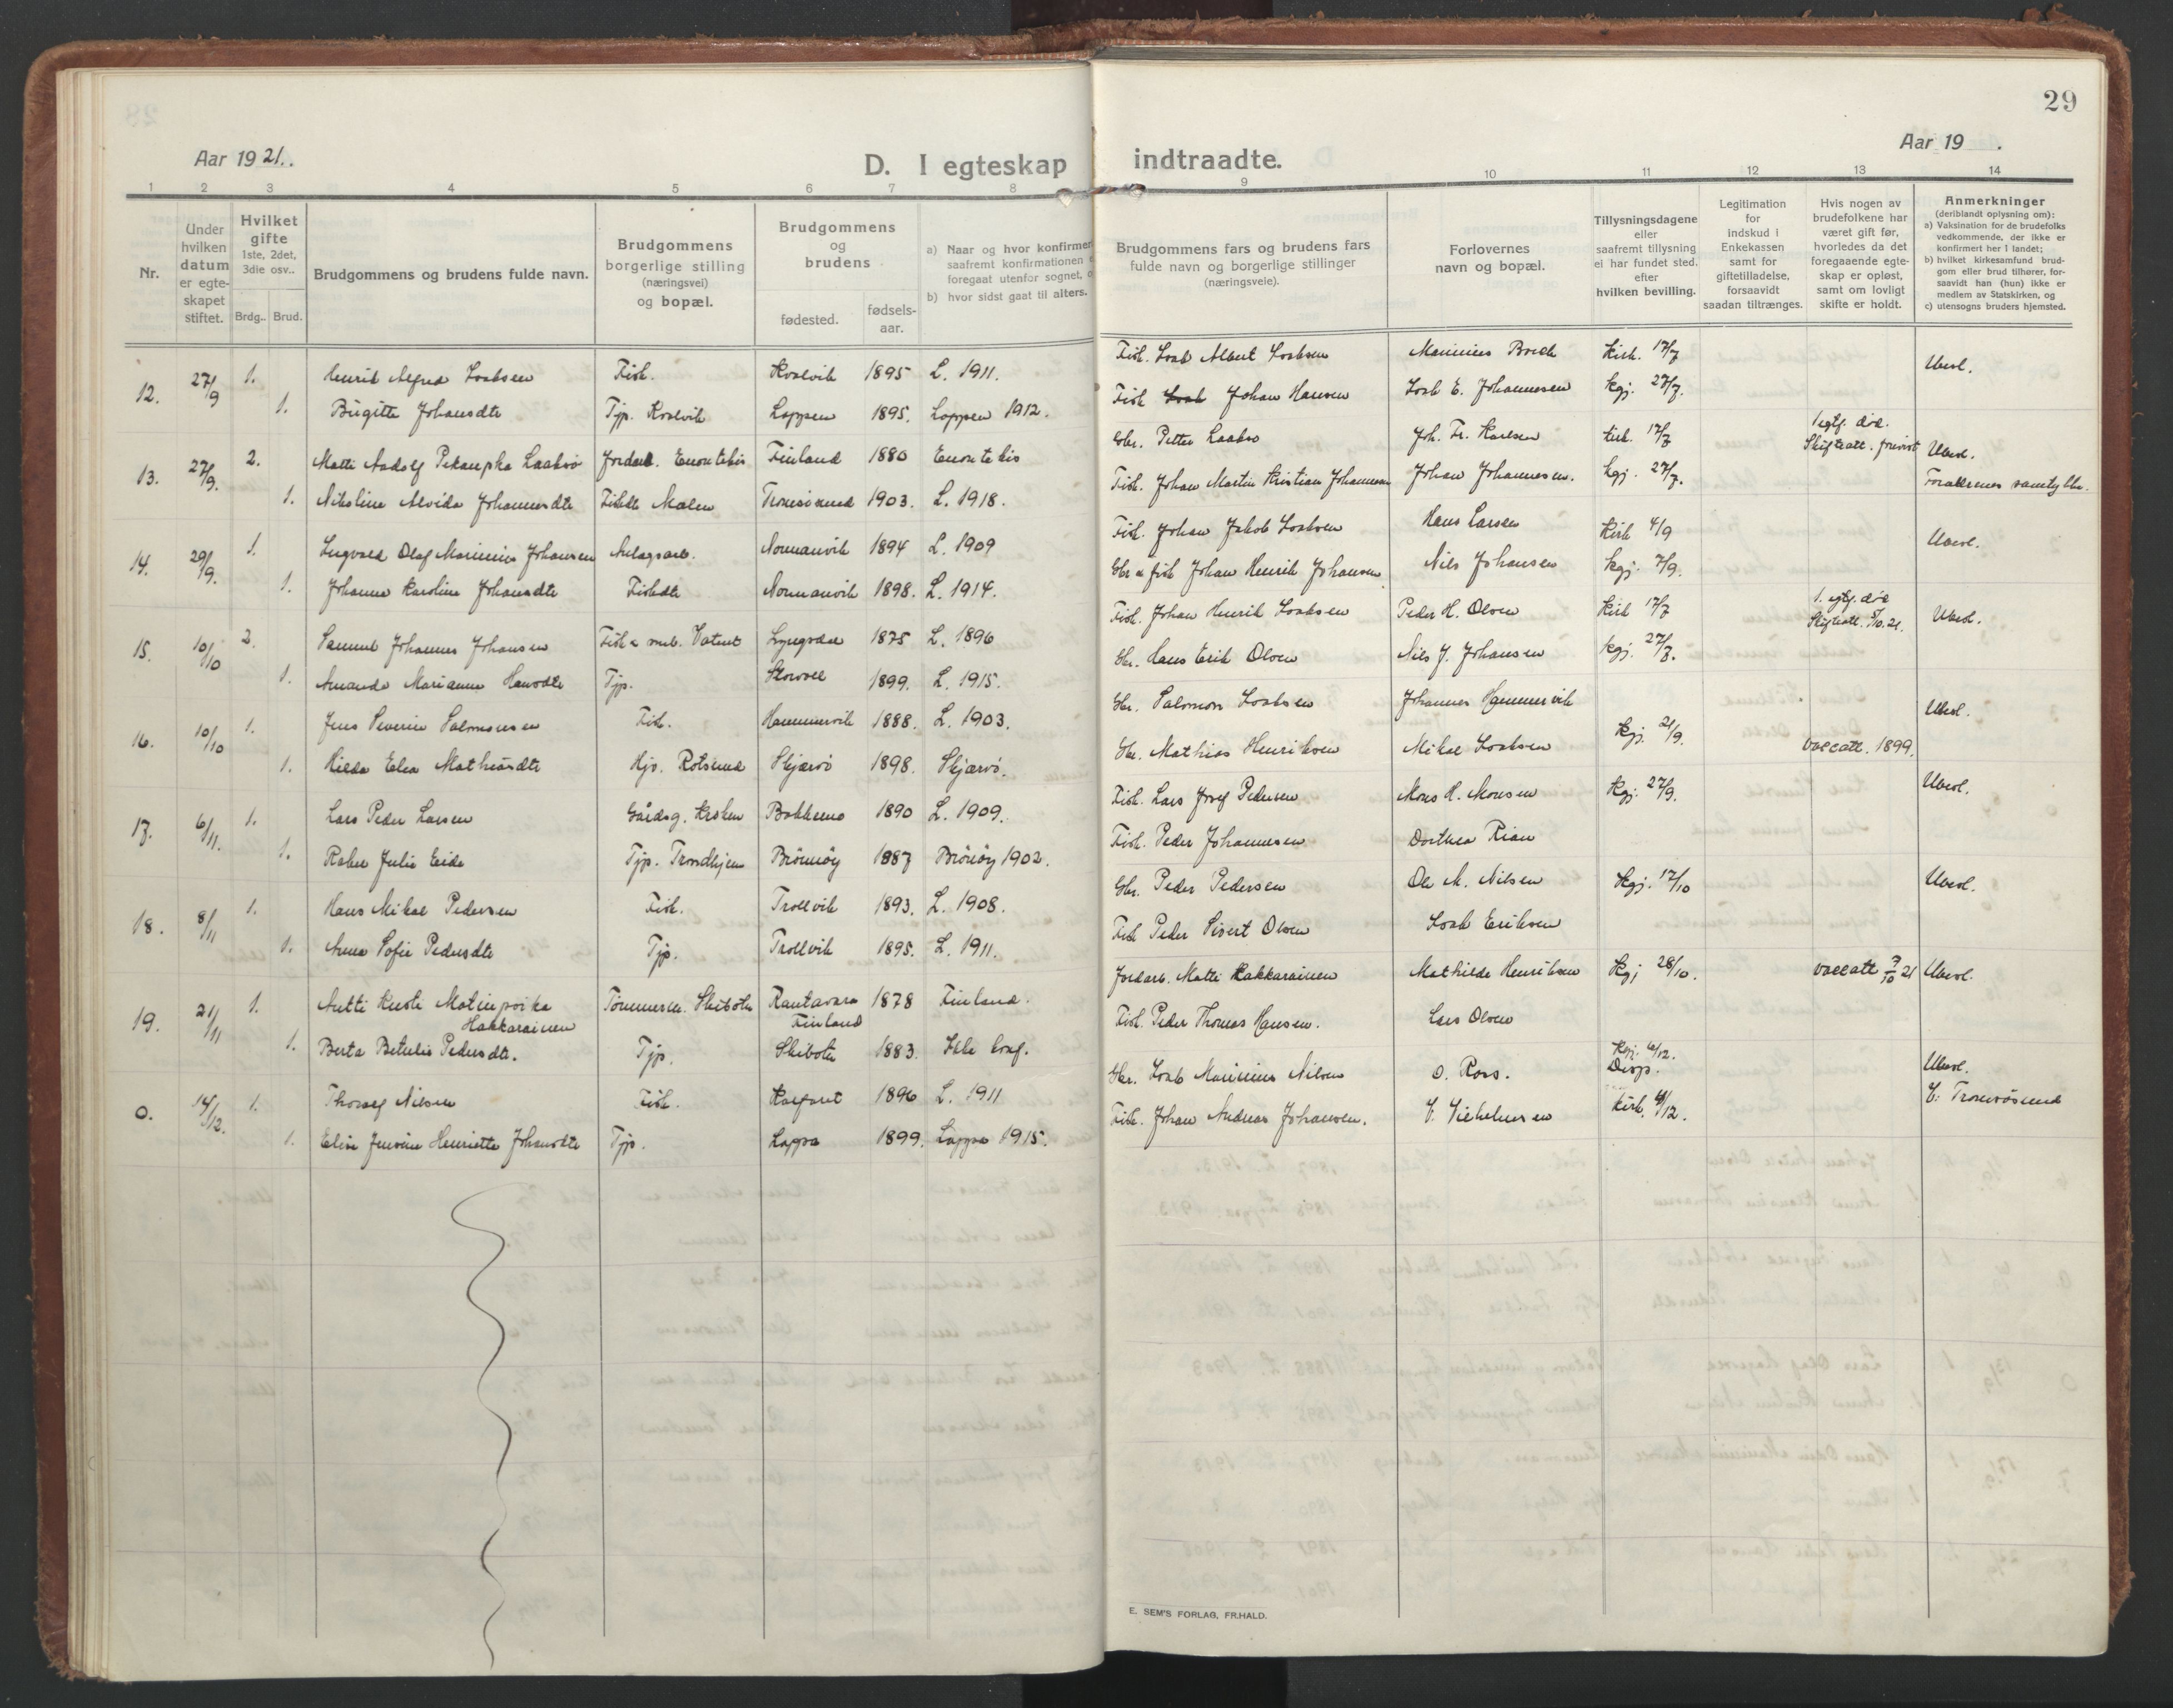 29
Aar 1921.
D. I egteskap indtraadte.
Aar 19 .
1 2 3 4 5 6 7 8 9 10 11 12 13 14
Nr.
Under hvilken datum er egte-skapet stiftet.
Hvilket gifte
1ste, 2det, 3die osv..
Brdg.. Brud.
Brudgommens og brudens fulde navn.
Brudgommens borgerlige stilling (næringsvei) og bopæl.
Brudgommens og brudens
fødested.
fødsels-aar.
a) Naar og hvor konfirmer
saafremt konfirmationen e
foregaat utenfor sognet, o
b) hvor sidst gaat til alters.
Brudgommens fars og brudens fars
fulde navn og borgerlige stillinger
(næringsveie).
Forlovernes
navn og bopæl.
Tillysningsdagene
eller
saafremt tillysning
ei har fundet sted,
efter
hvilken bevilling.
Legitimation
for
indskud i
Enkekassen
samt for
giftetilladelse,
forsaavidt
saadan tiltrænges.
Hvis nogen av
brudefolkene har
været gift før,
hvorledes da det
foregaaende egte-
skap er opløst,
samt om lovligt
skifte er holdt.
Anmerkninger
(deriblandt oplysning om):
a) Vaksination for de brudefolks
vedkommende, der ikke er
konfirmert her i landet;
b) hvilket kirkesamfund brud-
gom eller brud tilhører, for-
saavidt han (hun) ikke er
medlem av Statskirken, og
c) utensogns bruders hjemsted.
12. 27/9 1. Henrik Alfred Isaksen Fisk. Kvalvik 1895 L. 1911. Fisk. Isak Albert Isaksen Marinius Kirk. 17/7 Ubesl.
1. Birgitte Johansdtr Tjp. Kvalvik Loppen 1895. Loppen 1912. Fisk Isak Johan Hansen Isak E. Johannesen kgj. 27/7.
13. 27/9. 2. Matti Aadolf Pekanpka Laakso Enontekis Finland 1880 Enontekis Gbr. Petter Laakso Joh. Fr. Karlsen kirk. 17/7 1 egtf. død. Skifteatt. forevist Ubesl.
1. Nikoline Alvida Johannesdtr Fiskdtr Malen Tromsøsund 1903. L. 1918. Fisk. Johan Martin Kristian Johannesen Johan Johannesen. kgj. 27/7. Forældrenes samtykke.
14. 29/9. 1. Ingvald Olaf Marinius Johansen Anlagsarb. Normanvik 1894 L. 1909 Fisk. Johan Jakob Isaksen Hans Larsen Kirk 4/9 Ubesl.
1. Johanna Karoline Johansdtr Fiskdtr Normanvik 1898. L. 1914. Gbr & fisk Johan Henrik Johansen Nils Johansen kgj. 7/9.
15. 10/10 2. Samuel Johannes Johansen Fisk & smb. Lyngsdal 1875 L. 1896 Fisk. Johan Henrik Isaksen Peder H. Olsen Kirk 17/7 1. egtf. død Skifteatt. 5/10.21. Ubesl.
1. Amanda Marianne Hansdtr Tjp. Storvoll 1899. L. 1915. Gbr. Hans Erik Olsen Nils J. Johansen kgj. 27/7.
16. 10/10 1. Jens Severin Salomonsen Fisk. Hammervik 1888. L. 1903. Gbr. Salomon Isaksen Johannes Hammervik Ubesl.
1. Hilda Elea Mathiasdtr Hjv. Rotsund Skjærvø 1898. Skjærvø. Gbr. Mathias Henriksen Mikal Isaksen Kgj. 21/9. vaccatt. 1899.
17. 6/11. 1. Lars Peder Larsen Gårdsg. Bakkemo 1890 L. 1909. Fisk. Lars Josef Pedersen Mons H. Monsen Kgj. 27/9. Ubesl.
1. Julie Eide Tjp. Trondhjem Brønnøy 1887 Brønøy 1902. Fisk. Peder Johannesen Dorthea Rian
18. 8/11 1. Hans Mikal Pedersen Fisk. Trollvik 1893. L. 1908. Gbr. Peder Pedersen Ole M. Nilsen Kgj. 17/10 Ubesl.
1. Anna Sofie Pedersdtr Tjp. Trollvik 1895. L. 1911. Fisk Peder Sivert Olsen Isak Eriksen
19. 21/11 1. Antti Kusti Matinpoika Hakkarainen Tømmerm. Skibotn Rantavara Finland 1878 Finland. Jordarb. Matti Hakkarainen Mathilde Henriksen Kgj 28/10. vaccatt 7/10 21 Ubesl.
1. Berta Betulie Pedersdtr. Tjp. Skibotn 1883. Ikke konf. Fisk. Peder Thomas Hansen. Lars Olsen
0. 14/12. 1. Thoralf Nilsen Fisk. 1896 L. 1911 Gbr. Isak Marinius Nilsen O. Ross. Kgj. 6/12. Disp. Ubesl.
1. Elise Jensine Henriette Johansdtr Tjp. Loppa 1899. Loppa 1915. Fisk. Johan Andreas Johansen. V. Vilhelmsen Kirk. 4/12. C: Tromsøsund
E. SEM'S FORLAG, FR.HALD.